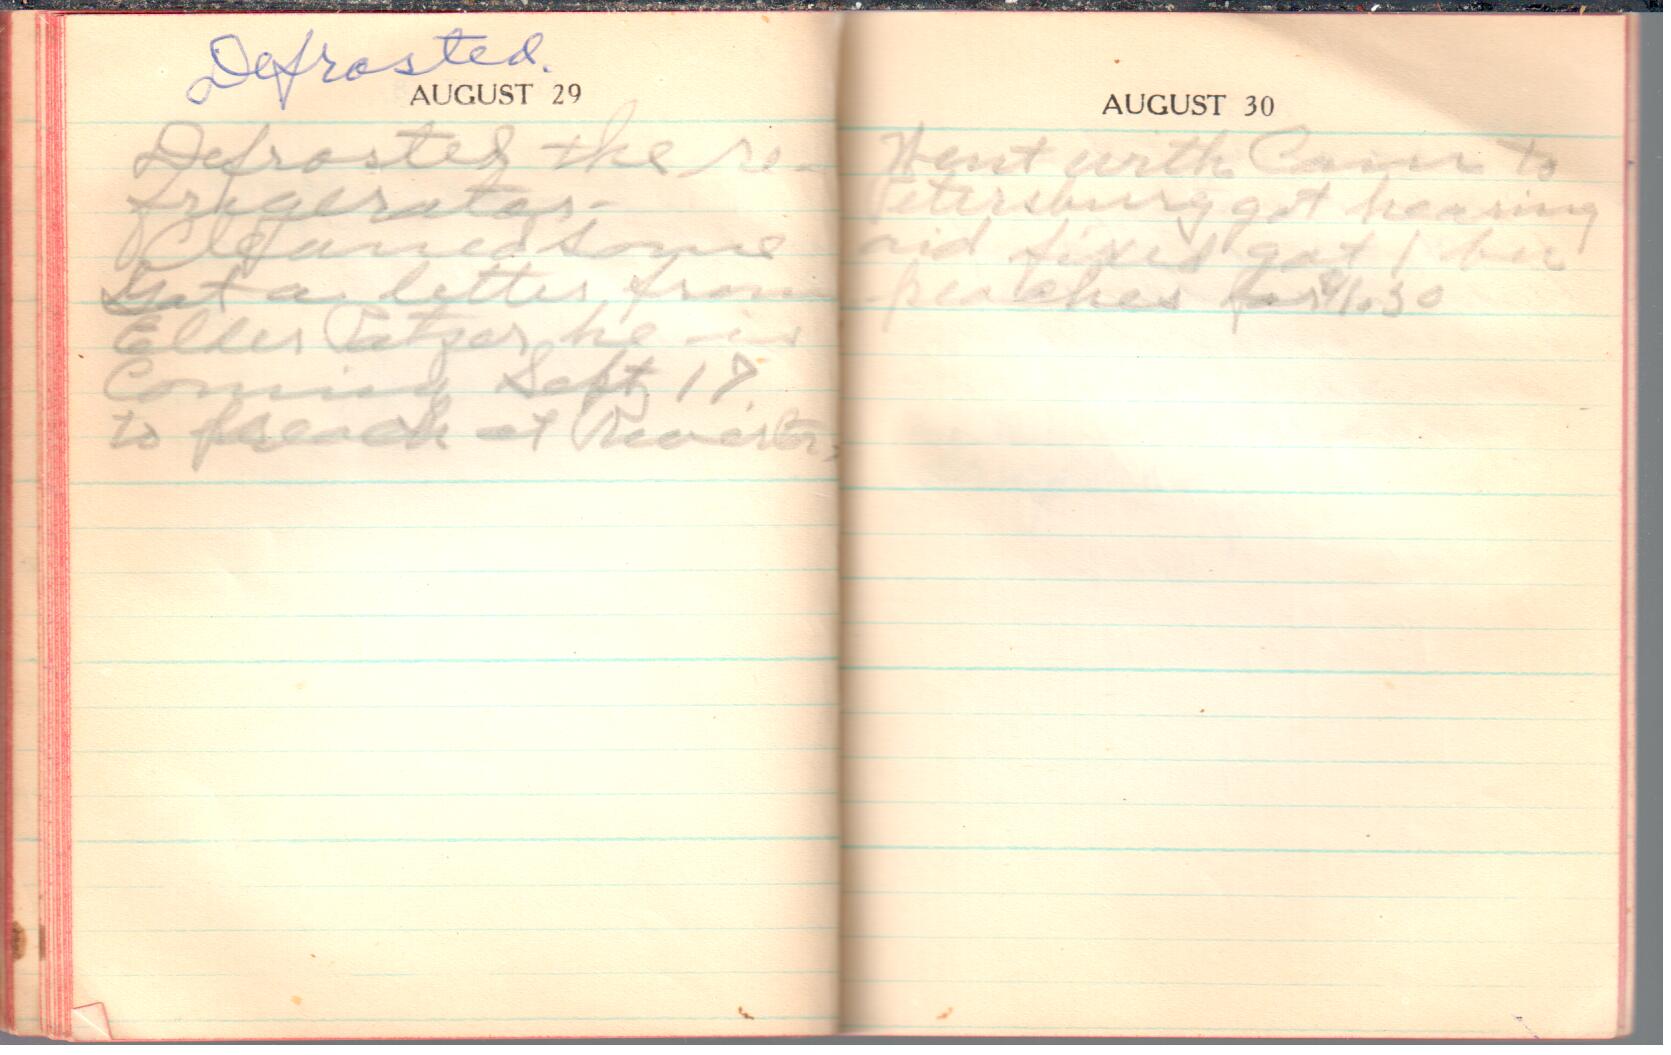 Defrosted.
AUGUST 29
Defrosted the re-
frigerator.
Cleaned some
Got a letter from
Elder he is
Coming Sept 17
to preach at
AUGUST 30
Went with to
Petersburg got hearing
aid fixed got 1 bu
peaches for $1.30